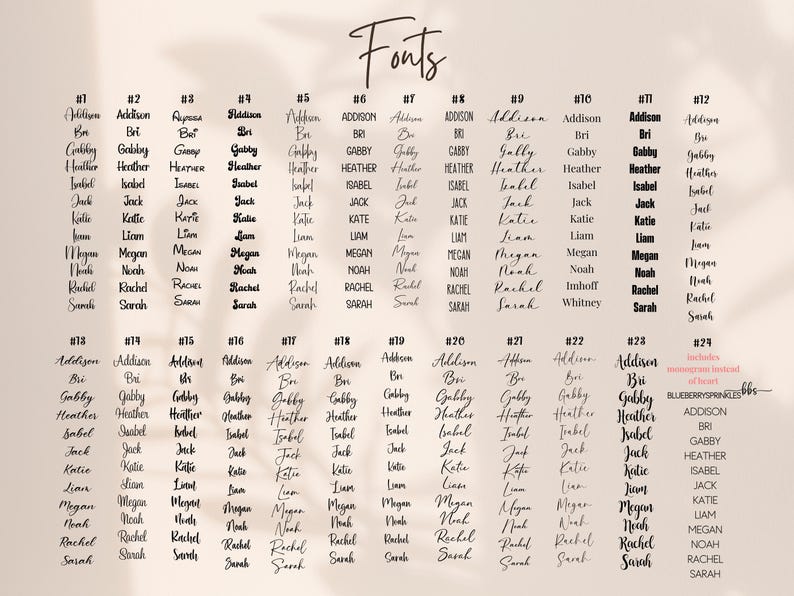 Fonts
#1 #2 #3 #4 #5 #6 #7 #8 #9 #10 #11 #12
Addison Addison Alyssa Addison Addison ADDISON Addison ADDISON Addison Addison Addison Addison
Bri Bri Bri Bri Bri BRI Bri BRI Bri Bri Bri Bri
Gabby Gabby Gabby Gabby Gabby GABBY Gabby GABBY Gabby Gabby Gabby Gabby
Heather Heather Heather Heather Heather HEATHER Heather HEATHER Heather Heather Heather Heather
Isabel Isabel Isabel Isabel Isabel ISABEL Isabel ISABEL Isabel Isabel Isabel Isabel
Jack Jack Jack Jack Jack JACK Jack JACK Jack Jack Jack Jack
Katie Katie Katie Katie Katie KATE Katie KATIE Katie Katie Katie Katie
Liam Liam Liam Liam Liam LIAM Liam LIAM Liam Liam Liam Liam
Megan Megan Megan Megan Megan MEGAN Megan MEGAN Megan Megan Megan Megan
Noah Noah Noah Noah Noah NOAH Noah NOAH Noah Noah Noah Noah
Rachel Rachel Rachel Rachel Rachel RACHEL Rachel RACHEL Rachel Imhoff Rachel Rachel
Sarah Sarah Sarah Sarah Sarah SARAH Sarah SARAH Sarah Whitney Sarah Sarah
#13 #14 #15 #16 #17 #18 #19 #20 #21 #22 #23 #24
Addison Addison Addison Addison Addison Addison Addison Addison Addison Addison Addison includes
monogram instead
of heart
Bri Bri Bri Bri Bri Bri Bri Bri Bri Bri Bri BLUEBERRYSPRINKLES bbs
Gabby Gabby Gabby Gabby Gabby Gabby Gabby Gabby Gabby Gabby Gabby ADDISON
Heather Heather Heather Heather Heather Heather Heather Heather Heather Heather Heather BRI
Isabel Isabel Isabel Isabel Isabel Isabel Isabel Isabel Isabel Isabel Isabel GABBY
Jack Jack Jack Jack Jack Jack Jack Jack Jack Jack Jack HEATHER
Katie Katie Katie Katie Katie Katie Katie Katie Katie Katie Katie ISABEL
Liam Liam Liam Liam Liam Liam Liam Liam Liam Liam Liam JACK
Megan Megan Megan Megan Megan Megan Megan Megan Megan Megan Megan KATIE
Noah Noah Noah Noah Noah Noah Noah Noah Noah Noah Noah LIAM
Rachel Rachel Rachel Rachel Rachel Rachel Rachel Rachel Rachel Rachel Rachel MEGAN
Sarah Sarah Sarah Sarah Sarah Sarah Sarah Sarah Sarah Sarah Sarah NOAH
RACHEL
SARAH